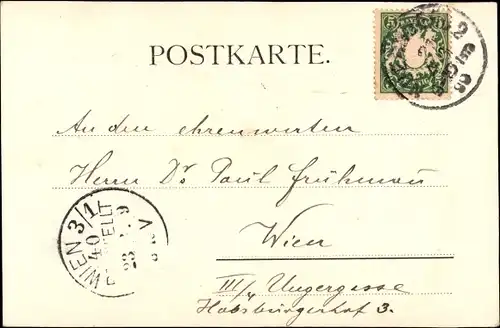 POSTKARTE.
An den ehrenwerten
Herrn Dr Paul Frühmau
Wien
III/4 Ungergasse
Habsburgerhof 3.
WIEN 3/1
40